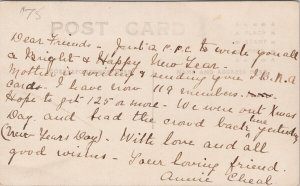 POST CARD
Dear Friends - Just a P.P.C to wish you all
a Bright & Happy New Year.
Mother is writing & sending you I.B.R.A
cards. I have now 119 members.
Hope to get 125 or more - We were out Xmas
Day and had the crowd back here yesterday
(New Years Day). With love and all
good wishes - Your loving friend.
Annie Cheal